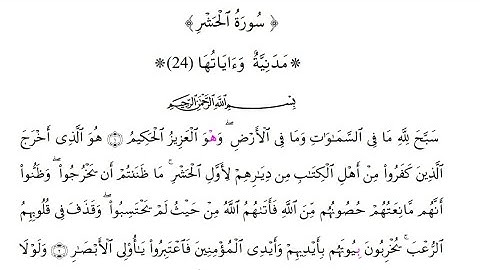 ﴿ سُورَةُ الْحَشْرِ ﴾
* مَدَنِيَّةٌ وَءَايَاتُهَا (24) *
بِسْمِ اللَّهِ الرَّحْمَٰنِ الرَّحِيمِ
سَبَّحَ لِلَّهِ مَا فِى السَّمَٰوَاتِ وَمَا فِى الْأَرْضِ ۖ وَهْوَ الْعَزِيزُ الْحَكِيمُ ١ هُوَ الَّذِى أَخْرَجَ
الَّذِينَ كَفَرُوا۟ مِنْ أَهْلِ الْكِتَٰبِ مِن دِيَٰرِهِمْ لِأَوَّلِ الْحَشْرِ ۚ مَا ظَنَنتُمْ أَن يَخْرُجُوا۟ ۖ وَظَنُّوا۟
أَنَّهُم مَّانِعَتُهُمْ حُصُونُهُم مِّنَ اللَّهِ فَأَتَىٰهُمُ اللَّهُ مِنْ حَيْثُ لَمْ يَحْتَسِبُوا۟ ۖ وَقَذَفَ فِى قُلُوبِهِمُ
الرُّعْبَ ۚ يُخْرِبُونَ بِيُوتَهُم بِأَيْدِيهِمْ وَأَيْدِى الْمُؤْمِنِينَ فَاعْتَبِرُوا۟ يَٰٓأُو۟لِى الْأَبْصَٰرِ ٢ وَلَوْلَا